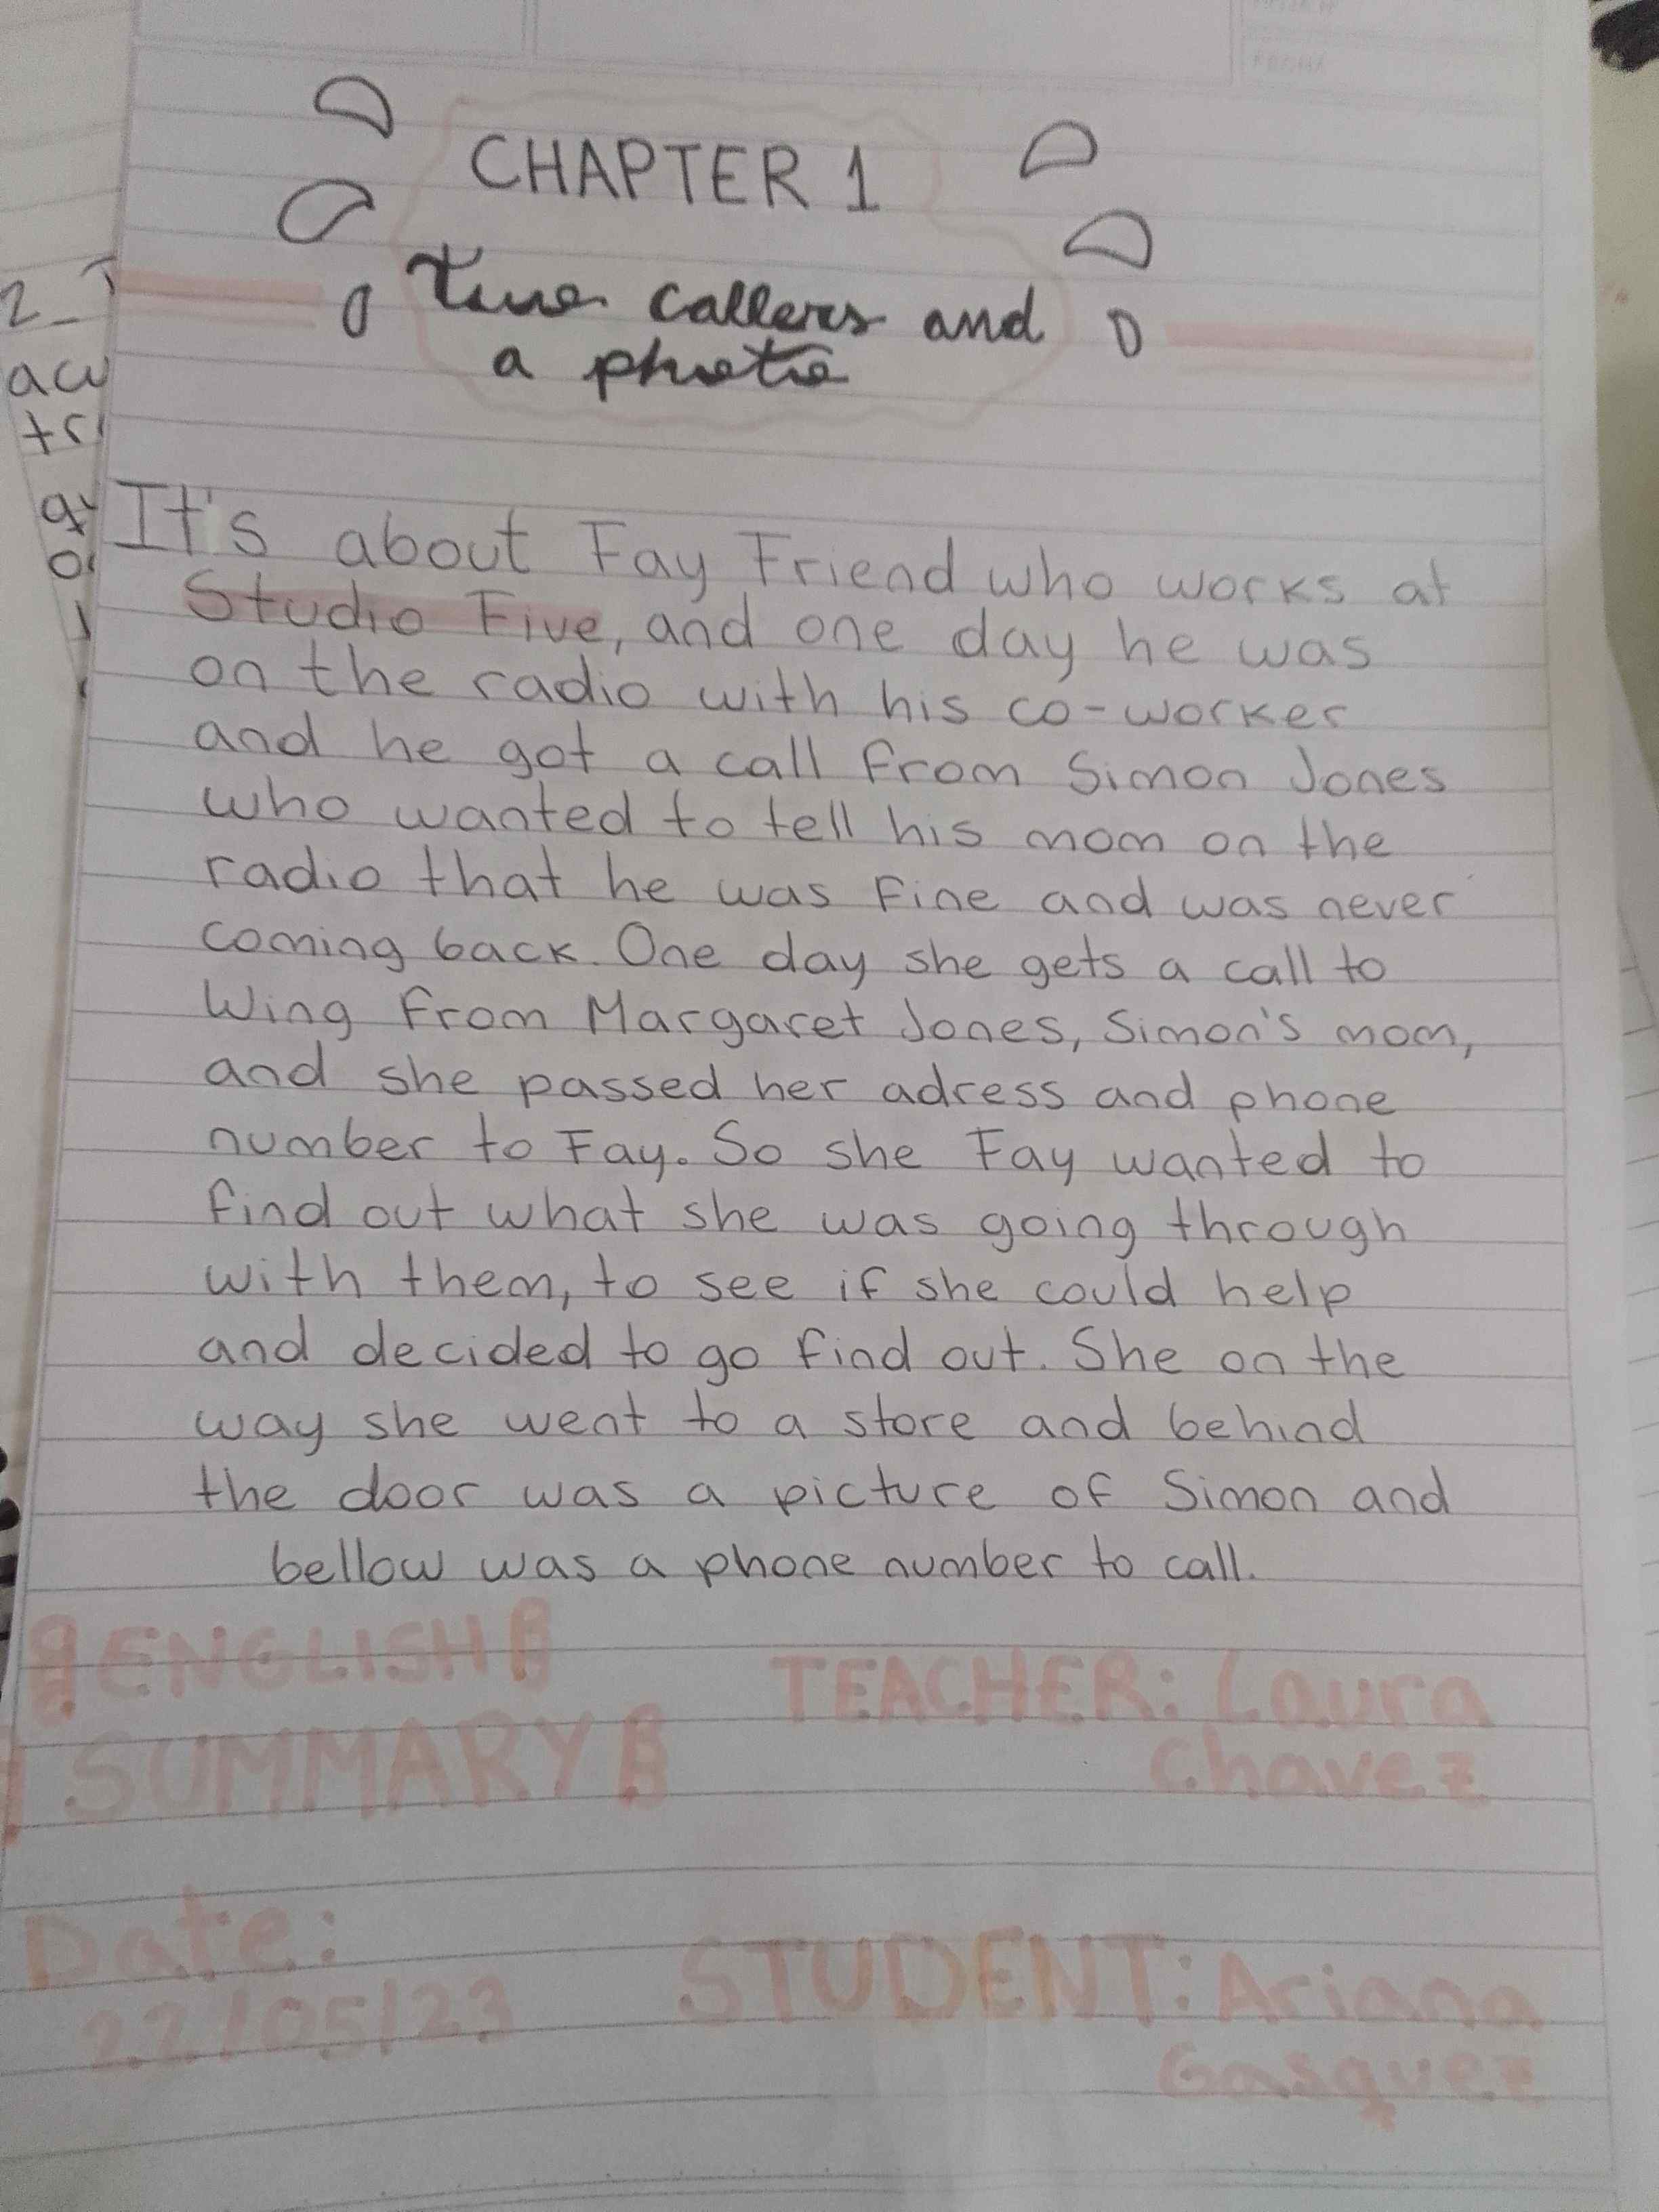 CHAPTER 1
Two callers and
a photo
It's about Fay Friend who works at
Studio Five, and one day he was
on the radio with his co-worker
and he got a call from Simon Jones
who wanted to tell his mom on the
radio that he was fine and was never
coming back. One day she gets a call to
Wing from Margaret Jones, Simon's mom,
and she passed her adress and phone
number to Fay. So she Fay wanted to
find out what she was going through
with them, to see if she could help
and decided to go find out. She on the
way she went to a store and behind
the door was a picture of Simon and
bellow was a phone number to call.
ENGLISH
SUMMARY
TEACHER: Laura
Chavez
Date:
22/05/23
STUDENT: Ariana
Gasquez